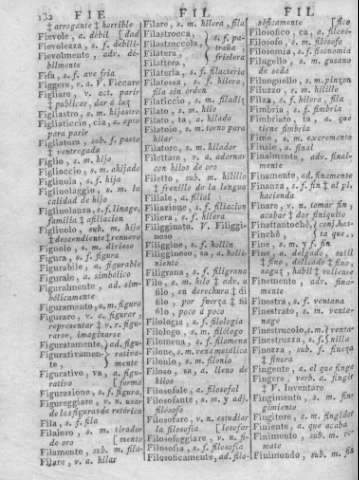 132 FIE
‡ arrogante ‡ horrible
Fievole, a. debil [dad
Fievolezza, s. f. debili-
Fievolmente, adv. de-
bilmente
Fifa, s. f. ave fria
Figgere, v. a. V. Ficcare
Figliare, v. act. parir
‡ publicar, dar a luz
Figliastro, s. m. hijastro
Figliaticcio, cia, a. apto
para parir
Figliatura, sub. f. parto
‡ ventregada
Figlio, s. m. hijo
Figlioccio, s. m. ahijado
Figliuola, s. f. hija
Figliuolaggio, s. m. la
calidad de hijo
Figliuolanza, s. f. linage,
familia ‡ afiliacion
Figliuolo, sub. m. hijo
‡ descendiente ‡ renuevo
Fignolo, s. m. divieso
Figura, s. f. figura
Figurabile, a. figurable
Figurale, a. simbolico
Figuralmente, ad. sim-
bólicamente
Figuramento, s. m. figura
Figurare, v. a. figurar
representar ‡ v. r. figu-
rarse, imaginarse
Figuratamente, } ad. figu-
Figurativamen- } rativa-
te, } mente
Figurativo, va, a. figu-
rativo [forma
Figurazione, s. f. figura,
Figureggiare, v. n. usar
de las figuras de retórica
Fila, s. f. fila
Filaloro, s. m. tirador
de oro [mento
Filamento, sub. m. fila-
Filare, v. a. hilar
FIL
Filare, s. m. hilera, fila
Filastrocca, } s. f. pa-
Filastroccola, } traña
Filatera, } friolera
Filattera,
Filateria, s. f. filacteria
Filatessa, s. f. hilera,
fila sin orden
Filaticcio, s. m. filadiz
Filato, s. m. hilo
Filato, ta, a. hilado
Filatoio, s. m. torno para
hilar
Filatore, s. m. hilador
Filettare, v. a. adornar
con hilos de oro
Filetto, sub. m. hilillo
‡ frenillo de la lengua
Filiale, a. filial
Filiazione, s. f. filiacion
Filiera, s. f. hilera
Filiggine, s. f. hollin
Filigginoso, sa, a. holli-
niento
Filigrana, s. f. filigrana
Filo, s. m. hilo ‡ adv. a
filo, en derechura ‡ di
filo, por fuerza ‡ fil
filo, poco á poco
Filologia, s. f. filologia
Filologo, a. m. filólogo
Filomena, s. f. filomena
Filonio, s. m. filonio
Filoso, sa, a. lleno de
hilos
Filosofale, a. filosofal
Filosofante, s. m. y adj.
filosofo
Filosofare, v. n. estudiar
la filosofia [losofar
Filosofeggiare, v. n. fi-
Filosofia, s. f. filosofia
Filosoficamente, ad. filo-
FIL
sóficamente
Filosofico, ca, a. filosó-
Filosofo, s. m. filosofo
Filosomia, s. f. fisonomia
Filugello, s. m. gusano
de seda
Filunguello, s. m. pinzon
Filuzzo, s. m. hilillo
Filza, s. f. hilera, fila
Fimbria, s. f. fimbria
Fimbriato, ta, a. que
tiene fimbria
Fimo, s. m. excremento
Finale, a. final
Finalmente, adv. final-
mente
Finamente, ad. finamente
Finanza, s. f. fin ‡ al pl.
hacienda
Finare, v. n. tomar fin,
acabar ‡ dar finiquito
Fine, s. m. y f. fin
Finemente, adv. fina-
mente
Finestra, s. f. ventana
Finestrato, s. m. venta-
nage
Finestruzza, s. f. nilla
Finezza, sub. f. fineza
‡ finura
Fingente, a. el que finge
Fingere, verb. a. fingir
‡ V. Inventare
Fingimento, s. m. fin-
gimiento
Fingitore, s. m. fingidor
Finiente, a. que acaba
Finimento, sub. m. re-
mate
Finimondo, sub. m. fin